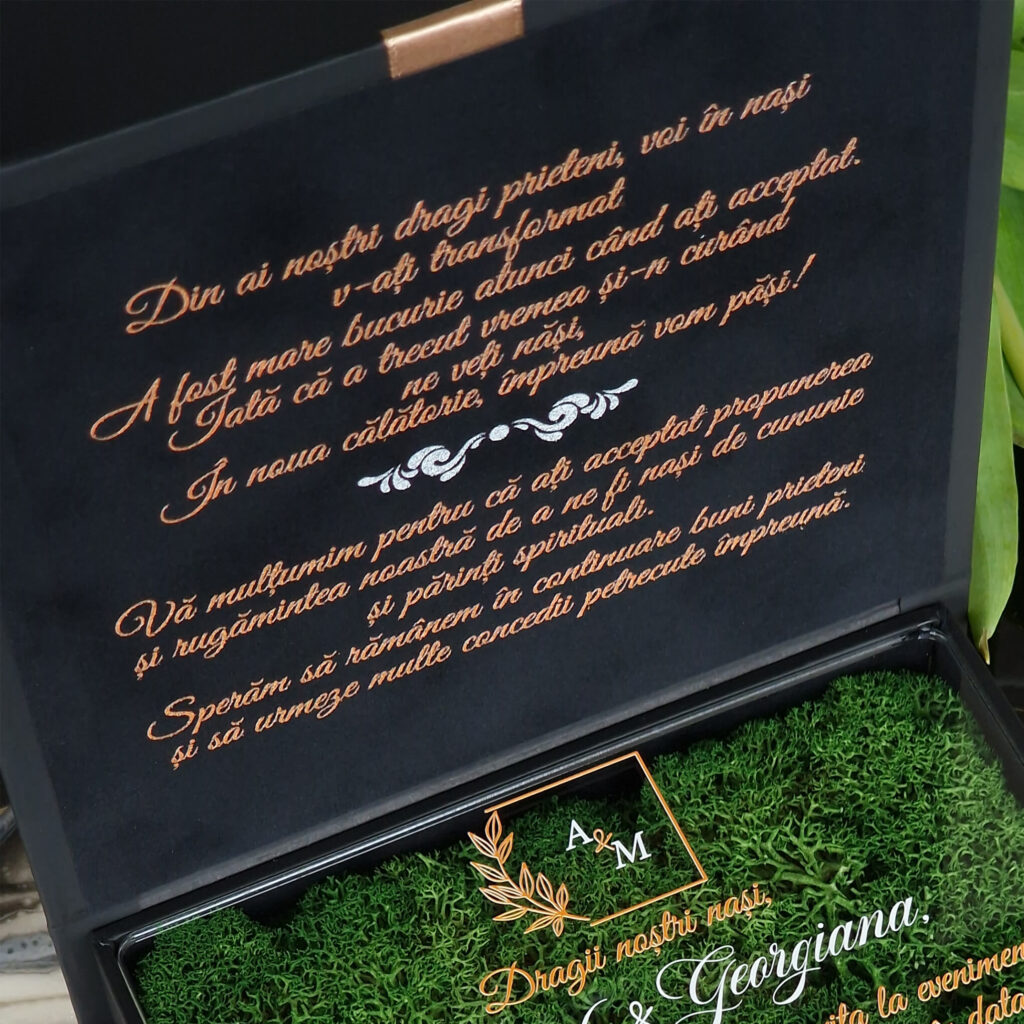 Din ai noștri dragi prieteni, voi în nași
v-ați transformat
A fost mare bucurie atunci când ați acceptat.
Iată că a trecut vremea și-n curând
ne veți năși,
În noua călătorie, împreună vom păși!
Vă mulțumim pentru că ați acceptat propunerea
și rugămintea noastră de a ne fi nași de cununie
și părinți spirituali.
Sperăm să rămânem în continuare buni prieteni
și să urmeze multe concedii petrecute împreună.
A & M
Dragii noștri nași,
& Georgiana,
la
data